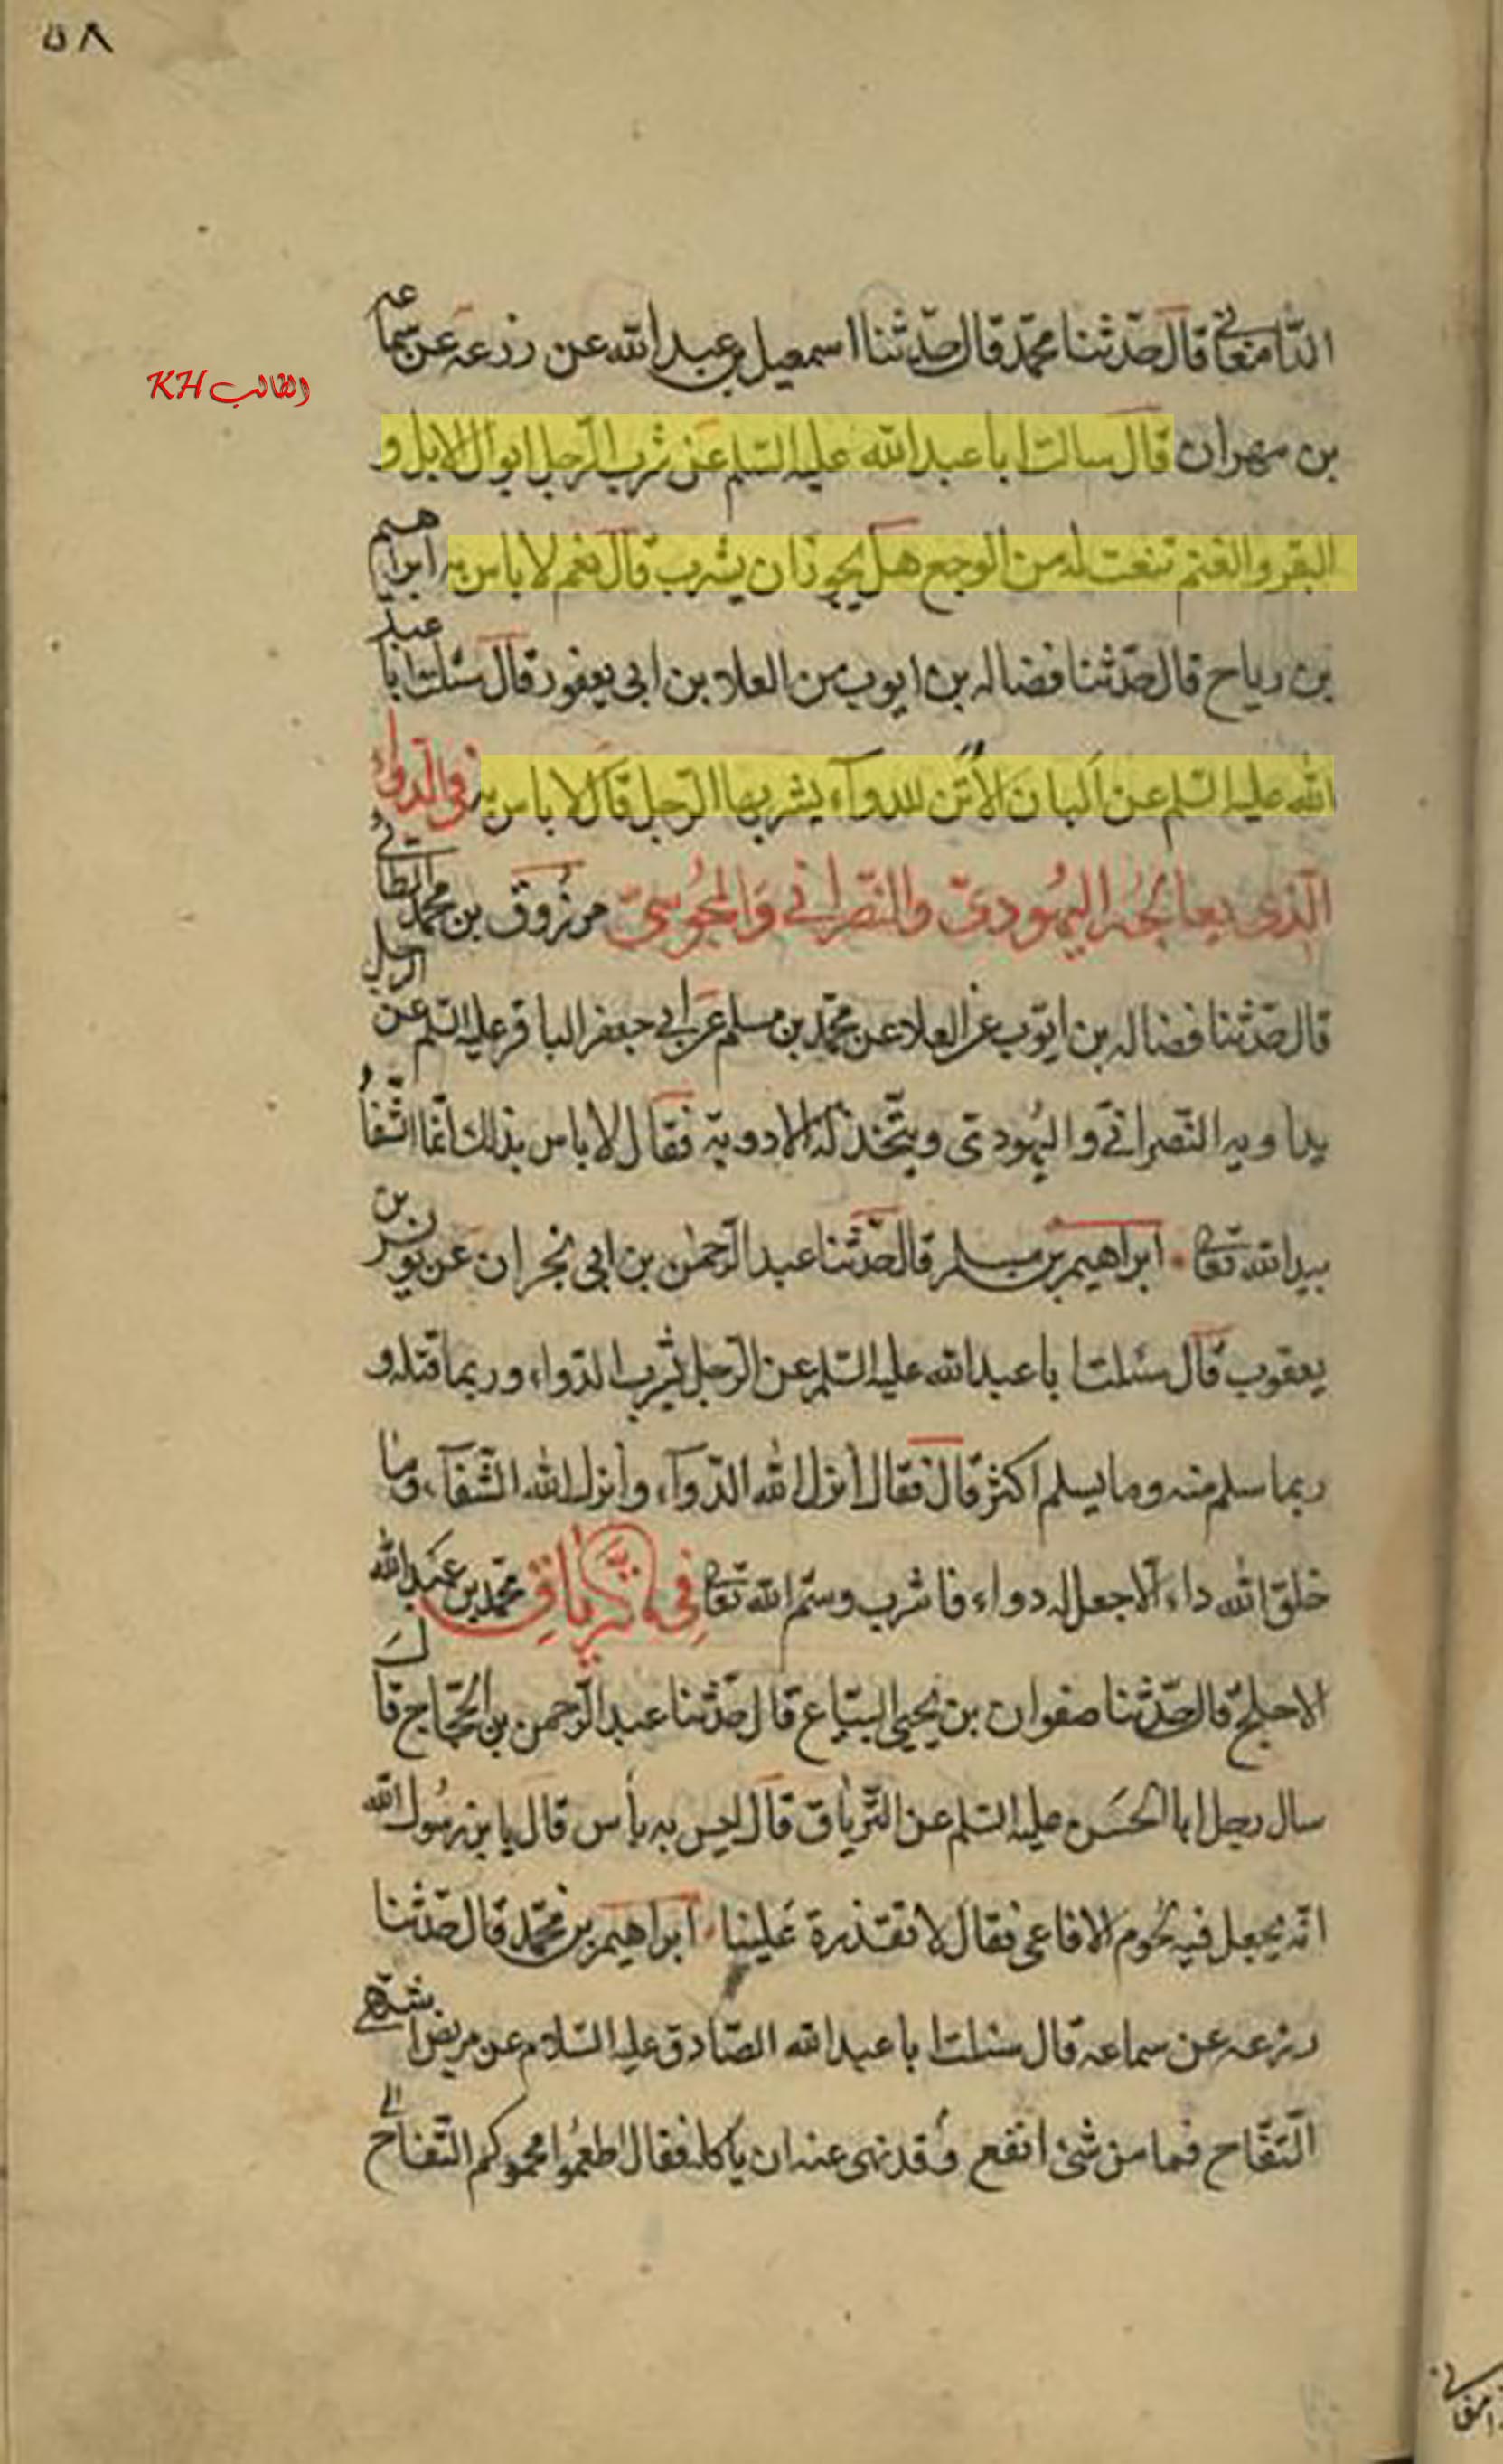 ٥٨
الدّامغاني قال حدّثنا محمّد قال حدّثنا اسمعيل بن عبد الله عن زرعه عن سماعه
الطالب KH
بن مهران قال سالت ابا عبد الله عليه السّلم عن شرب الرّجل ابوال الابل و
البقر والغنم تنعت له من الوجع هل يجوز ان يشرب قال نعم لا باس به ابراهيم
بن رياح قال حدّثنا فضاله بن ايوب من العلا بن ابي يعفور قال سئلت ابا عبد
الله عليه السّلم عن البان الأتن للدوآء يشربها الرّجل قال لا باس به في الدّوآء
الّذي يعالجه اليهوديّ والنّصرانيّ والمجوسيّ مرزوق بن محمد الطائي
قال حدّثنا فضاله بن ايّوب عن العلا عن محمّد بن مسلم عن ابي جعفر الباقر عليه السّلم عن الرجل
يداويه النّصرانيّ واليهوديّ ويتّخذ له الادويه فقال لا باس بذلك انّما الشّفاء
بيد الله تعالى ابراهيم بن مسلم قال حدّثنا عبد الرّحمن بن ابي نجران عن يونس بن
يعقوب قال سئلت ابا عبد الله عليه السّلم عن الرّجل يشرب الدّواء وربما قتله و
ربما سلم منه وما يسلم اكثر قال فقال أنزل الله الدّوآء وأنزل الله الشّفآء وما
خلق الله داء الّا جعل له دواء فاشرب وسمّ الله تعالى في التّرياق محمّد بن عبد الله
الاجلح قال حدّثنا صفوان بن يحيى البيّاع قال حدّثنا عبد الرّحمن بن الحجّاج قال
سال رجل ابا الحسن عليه السّلم عن التّرياق قال ليس به بأس قال يا بن رسول الله
انّه يجعل فيه لحوم الافاعي فقال لا تقذره علينا ابراهيم بن محمّد قال حدّثنا
زرعه عن سماعه قال سئلت ابا عبد الله الصّادق عليه السّلام عن مريض اشتهى
التّفّاح فما من شئ انفع وقد نهى عنه ان ياكله فقال اطعموا محموكم التّفاح